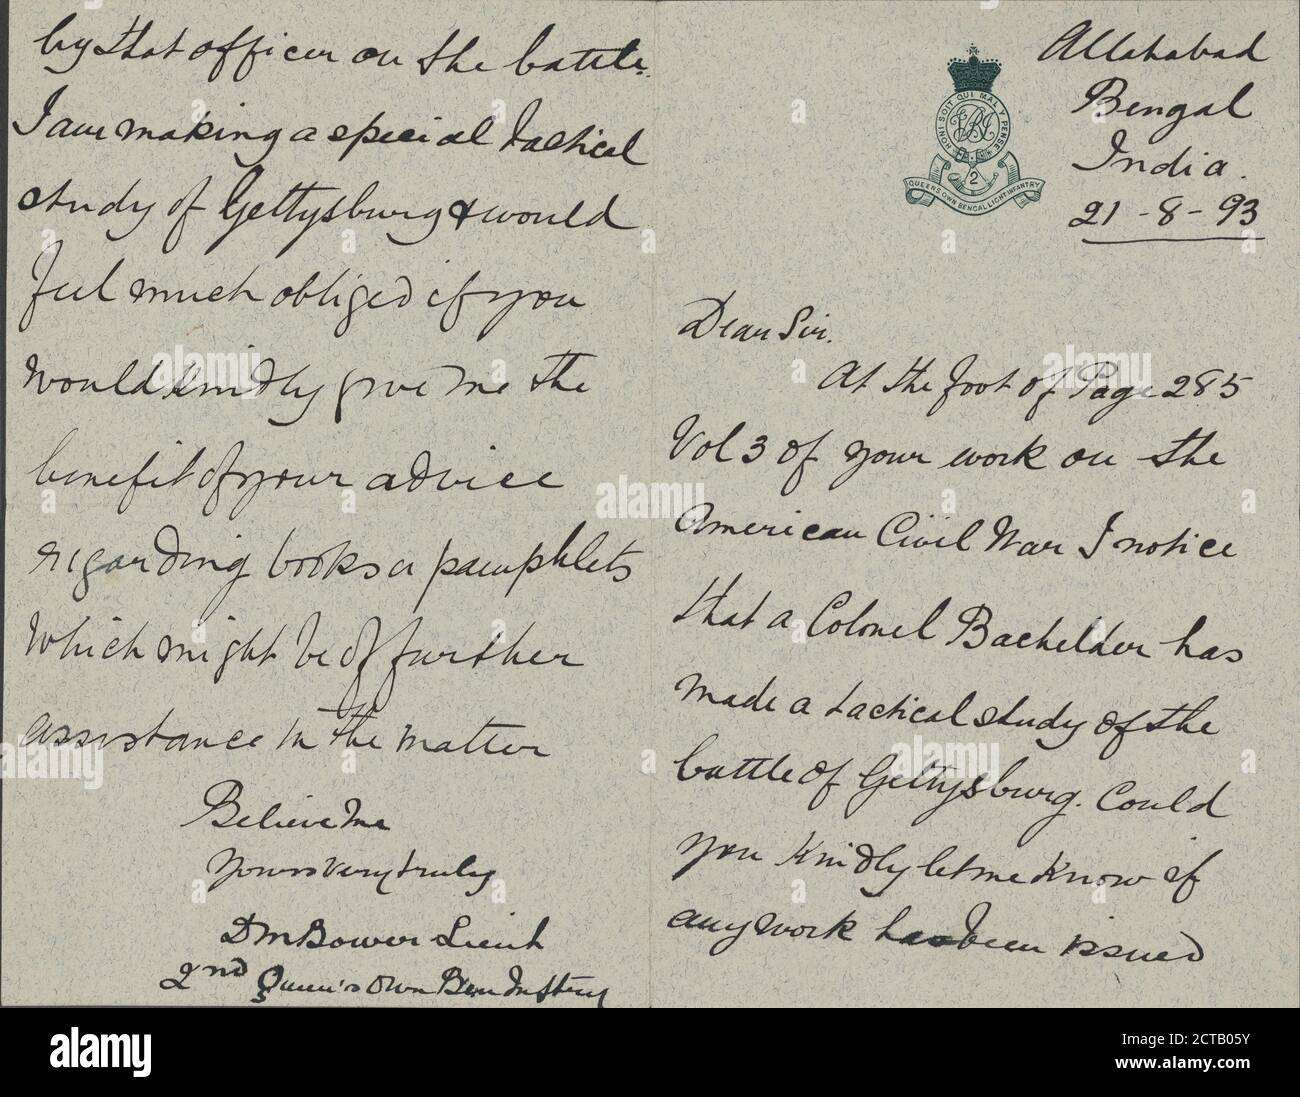 Allahabad
Bengal
India.
21-8-93
HONI SOIT QUI MAL Y PENSE
2
QUEENS OWN BENGAL LIGHT INFANTRY
Dear Sir.
At the foot of Page 285
Vol 3 of your work on the
American Civil War I notice
that a Colonel Bachelder has
made a tactical study of the
battle of Gettysburg. Could
you kindly let me know if
any work has been issued
by that officer on the battle.
I am making a special tactical
study of Gettysburg & would
feel much obliged if you
would kindly give me the
benefit of your advice
regarding books or pamphlets
which might be of further
assistance in the matter
Believe me
Yours very truly
D M Bower Lieut
2nd Queen's Own Ben Infantry
alamy
Image ID: 2CTB05Y
www.alamy.com